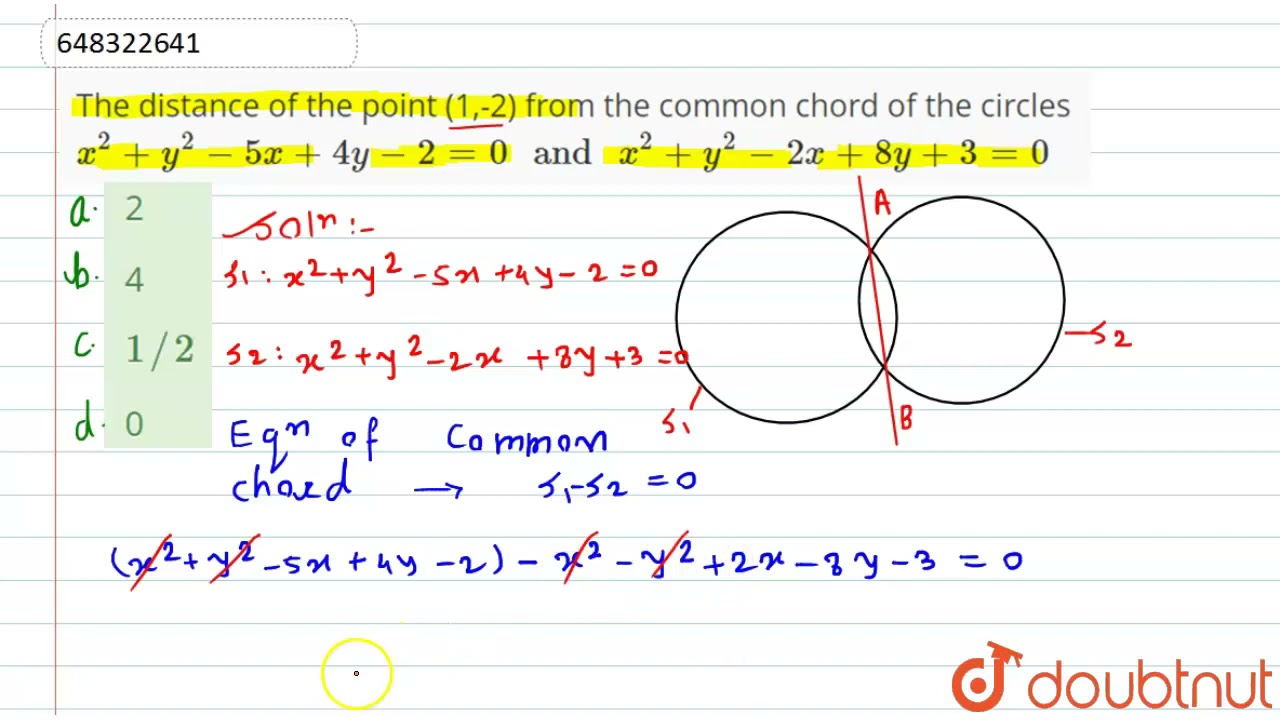 648322641
The distance of the point (1,-2) from the common chord of the circles
x² + y² − 5x + 4y − 2 = 0 and x² + y² − 2x + 8y + 3 = 0
a. 2
b. 4
c. 1/2
d. 0
Soln :-
S₁ : x² + y² - 5x + 4y - 2 = 0
S₂ : x² + y² - 2x + 8y + 3 = 0
A
S₂
S₁
B
Eqn of Common
chord → S₁-S₂ = 0
(x² + y² - 5x + 4y - 2) - x² - y² + 2x - 8y - 3 = 0
doubtnut